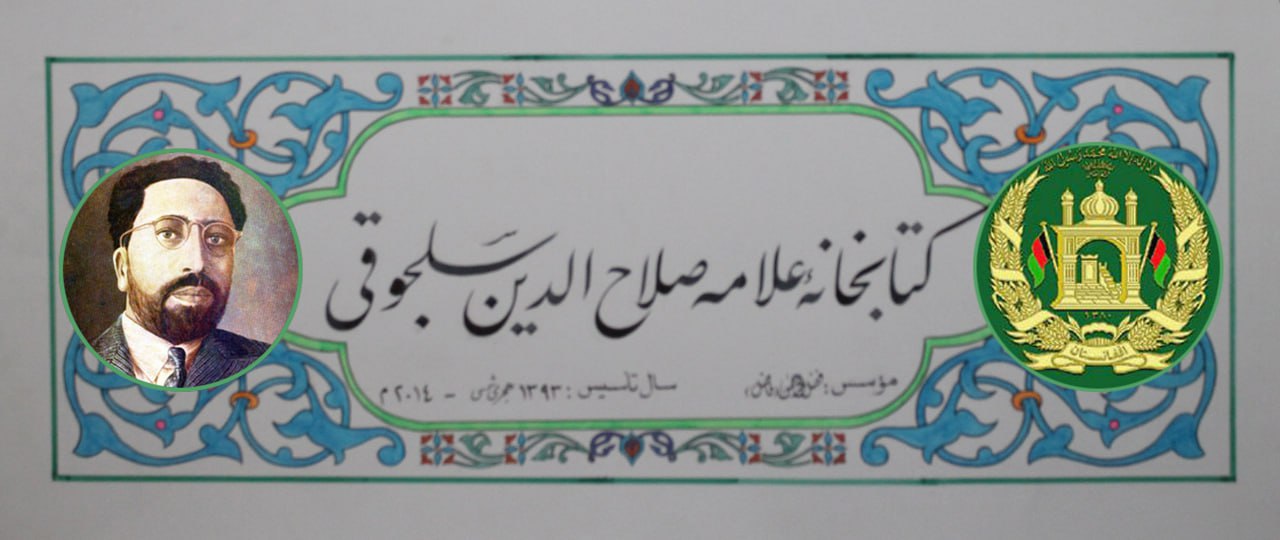 کتابخانهٔ علامه صلاح الدین سلجوقی
مؤسس :
سال تأسیس : ۱۳۹۳ هجری شمسی - ۲۰۱۴ م
لا إله إلا الله محمد رسول الله
۱۳۸۰
افغانستان